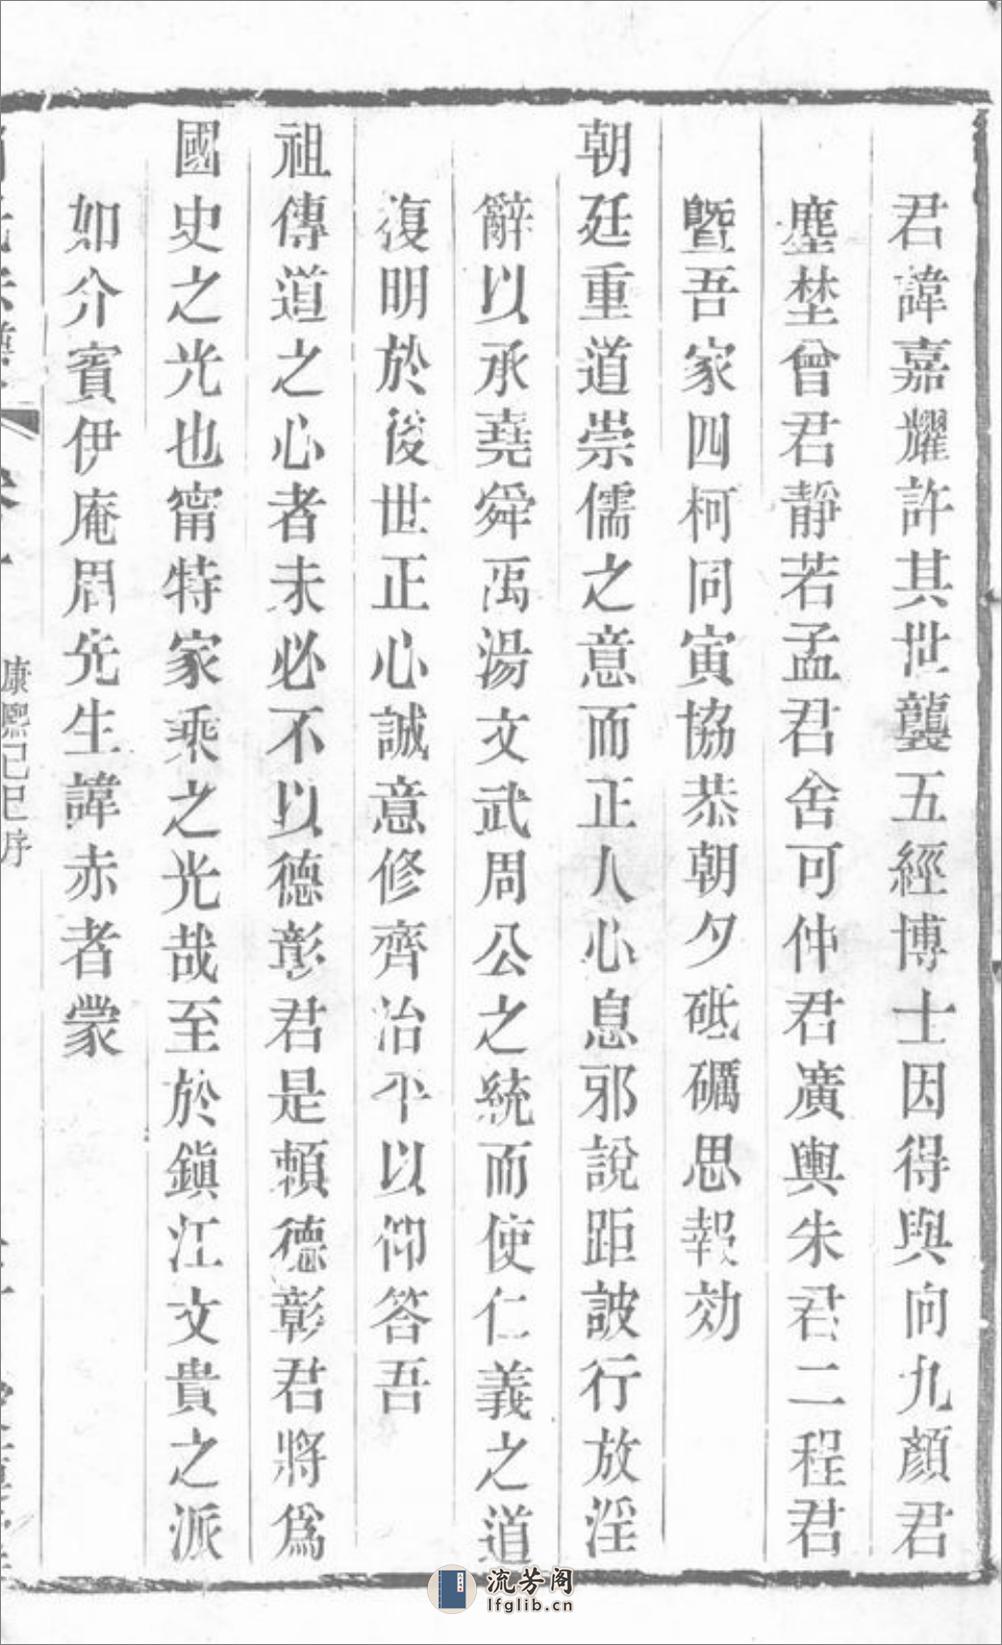 君諱嘉耀許其世襲五經博士因得與向九顏君
塵埜曾君靜若孟君舍可仲君廣輿朱君二程君
暨吾家四柯同寅協恭朝夕砥礪思報効
朝廷重道崇儒之意而正人心息邪說距詖行放淫
辭以承堯舜禹湯文武周公之統而使仁義之道
復明於後世正心誠意修齊治平以仰答吾
祖傳道之心者未必不以德彰君是賴德彰君將爲
國史之光也甯特家乘之光哉至於鎭江文貴之派
如介賓伊庵周先生諱赤者蒙
康熙己巳序
流芳阁
lfglib.cn